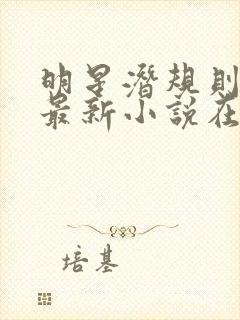 明星潛規則
最新小說在
培基